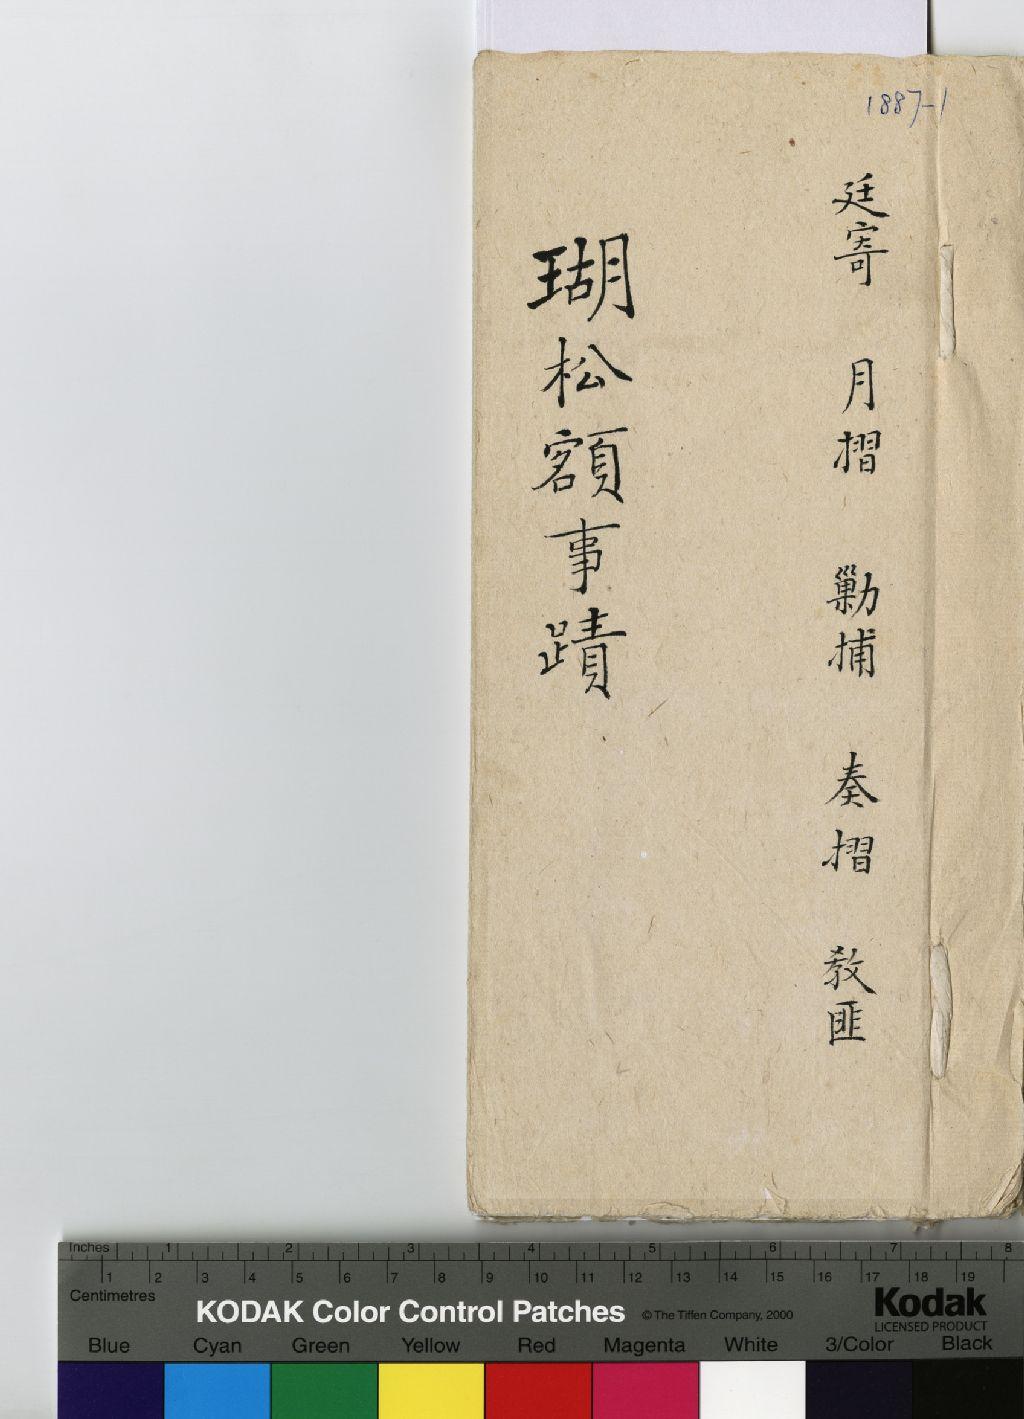 1887-1
廷寄 月摺 勦捕 奏摺 教匪
瑚松額事蹟
Inches 1 2 3 4 5 6 7 8
1 2 3 4 5 6 7 8 9 10 11 12 13 14 15 16 17 18 19
Centimetres
KODAK Color Control Patches © The Tiffen Company, 2000 Kodak
LICENSED PRODUCT
Blue Cyan Green Yellow Red Magenta White 3/Color Black